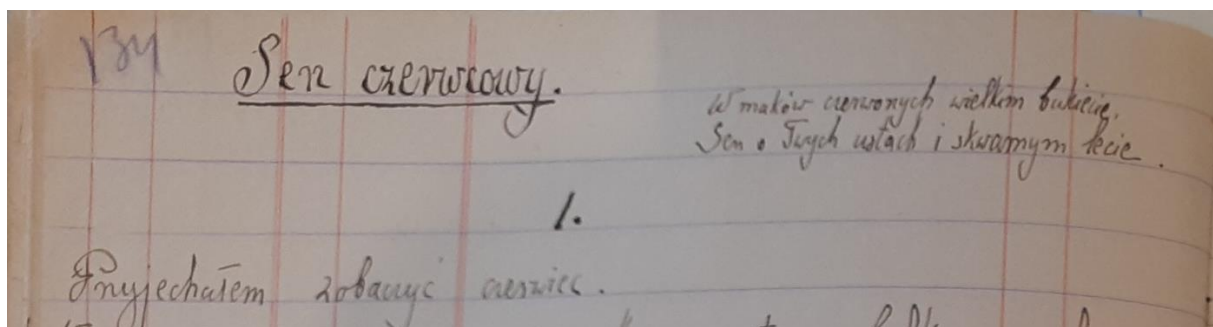 134
Sen czerwcowy.
W maków czerwonych wielkim bukiecie,
Sen o Twych ustach i skwarnym lecie.
1.
Przyjechałem zobaczyć czerwiec.